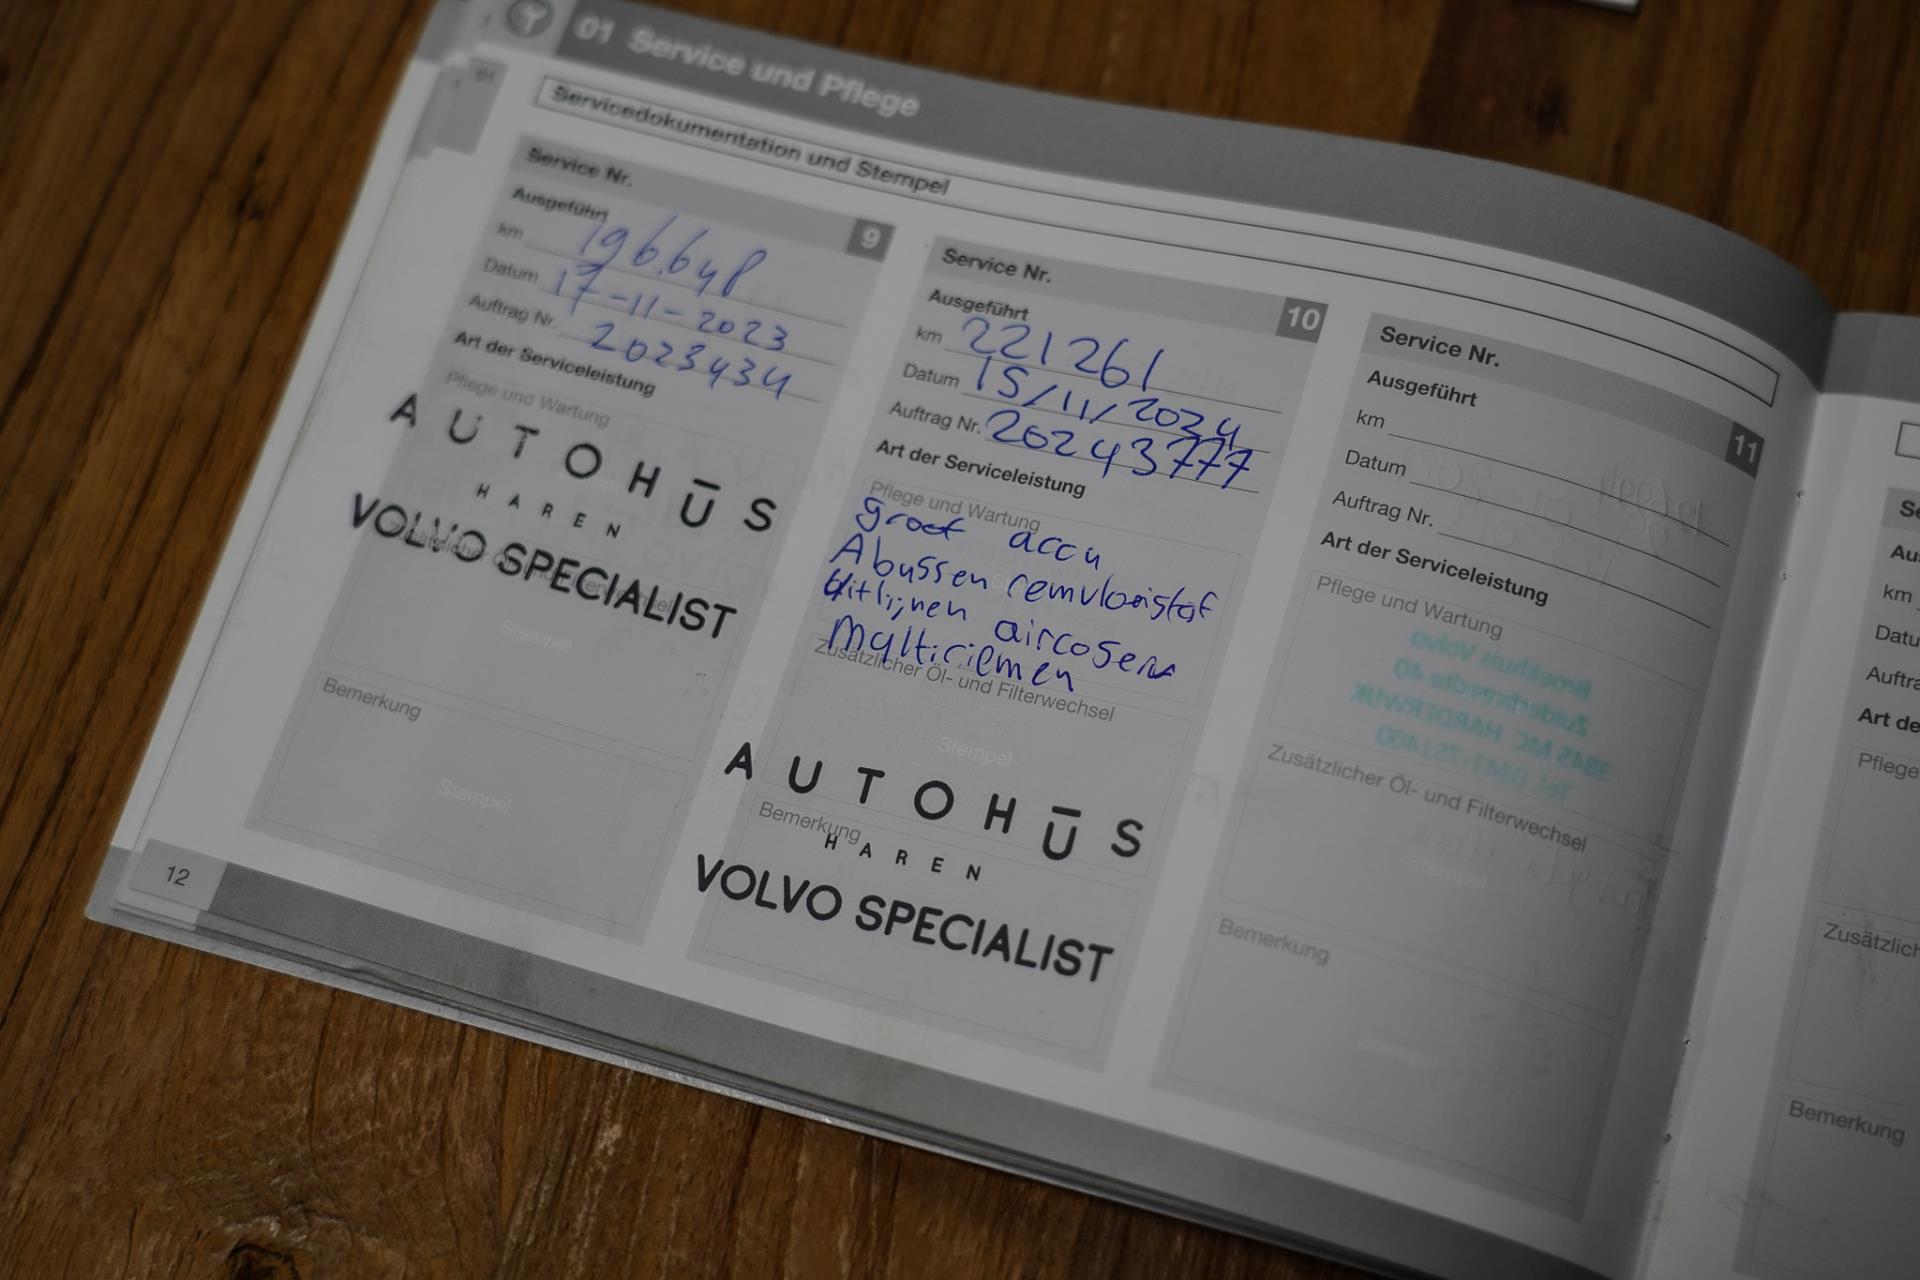 01 Service und Pflege
Servicedokumentation und Stempel
Service Nr. 9
Ausgeführt
km 196.648
Datum 17-11-2023
Auftrag Nr. 2023434
Art der Serviceleistung
Pflege und Wartung
AUTOHŪS
HAREN
VOLVO SPECIALIST
Stempel
Bemerkung
Stempel
12
Service Nr. 10
Ausgeführt
km 221261
Datum 15/11/2024
Auftrag Nr. 20243777
Art der Serviceleistung
Pflege und Wartung
groot accu
Abussen remvloeistof
Uitlijnen aircoserv
Multiriemen
Zusätzlicher Öl- und Filterwechsel
Stempel
AUTOHŪS
Bemerkung
HAREN
VOLVO SPECIALIST
Service Nr. 11
Ausgeführt
km
Datum
Auftrag Nr.
Art der Serviceleistung
Pflege und Wartung
Broekhuis Volvo
Zuiderbreedte 40
3845 MC HARDERWIJK
Tel. 0341-751400
Zusätzlicher Öl- und Filterwechsel
Stempel
Bemerkung
Stempel
Se
Aus
km
Datu
Auftra
Art de
Pflege
Zusätzlich
Bemerkung